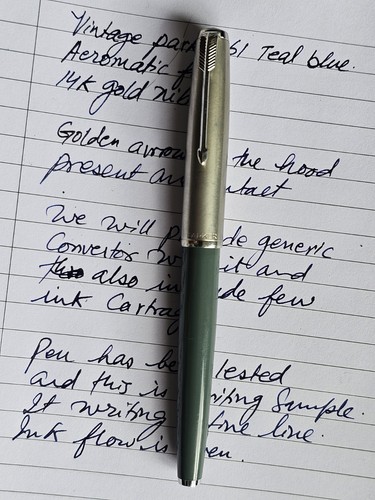 Vintage park 51 Teal blue.
Aeromatic f
14K gold nib
Golden arrow the hood
present an ntact
We will p de generic
Convertor w it and
also in de few
ink Cartrag
Pen has be Tested
and this is writing Sample.
It writing fine line.
Ink flow is en.